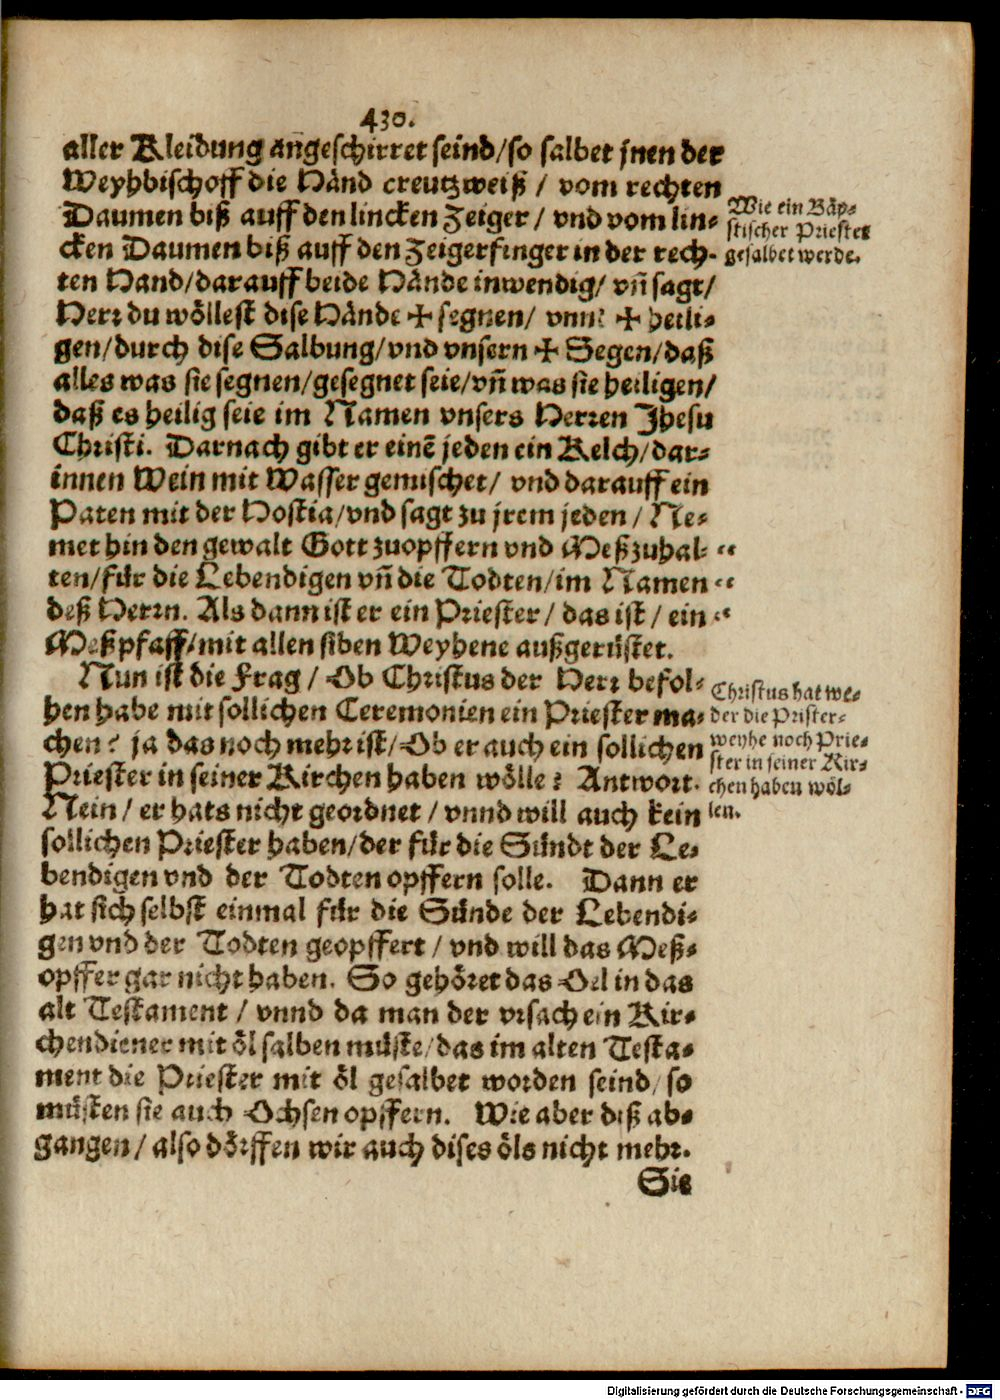 430.
aller Kleidung angeschirret seind/so salbet jnen der
Weyhbischoff die Händ creutzweiß / vom rechten
Daumen biß auff den lincken Zeiger / vnd vom lin-
cken Daumen biß auff den Zeigerfinger in der rech-
ten Hand/darauff beide Hände inwendig/ vñ sagt/
Herr du wöllest dise Hände ✠ segnen/ vnnd ✠ heili-
gen/durch dise Salbung/vnd vnsern ✠ Segen/daß
alles was sie segnen/gesegnet seie/vñ was sie heiligen/
daß es heilig seie im Namen vnsers Herren Jhesu
Christi. Darnach gibt er einẽ jeden ein Kelch/dar-
innen Wein mit Wasser gemischet/ vnd darauff ein
Paten mit der Hostia/vnd sagt zu jrem jeden / Ne-
met hin den gewalt Gott zuopffern vnd Meß zuhal- “
ten/für die Lebendigen vñ die Todten/im Namen “
deß Herrn. Als dann ist er ein Priester/ das ist / ein “
Meßpfaff/mit allen siben Weyhene außgerüstet.
Wie ein Bäp-
stischer Priester
gesalbet werde.
Nun ist die Frag / Ob Christus der Herr befol-
hen habe mit sollichen Ceremonien ein Priester ma-
chen? ja das noch mehr ist/ Ob er auch ein sollichen
Priester in seiner Kirchen haben wölle? Antwort.
Nein/ er hats nicht geordnet / vnnd will auch kein
sollichen Priester haben/der für die Sündt der Le-
bendigen vnd der Todten opffern solle. Dann er
hat sich selbst einmal für die Sünde der Lebendi-
gen vnd der Todten geopffert / vnd will das Meß-
opffer gar nicht haben. So gehöret das Oel in das
alt Testament / vnnd da man der vrsach ein Kir-
chendiener mit öl salben müste/das im alten Testa-
ment die Priester mit öl gesalbet worden seind/ so
müsten sie auch Ochsen opffern. Wie aber diß ab-
gangen/ also dörffen wir auch dises öls nicht mehr.
Christus hat we-
der die Prister-
weyhe noch Prie-
ster in seiner Kir-
chen haben wöl-
len.
Sie
Digitalisierung gefördert durch die Deutsche Forschungsgemeinschaft - DFG